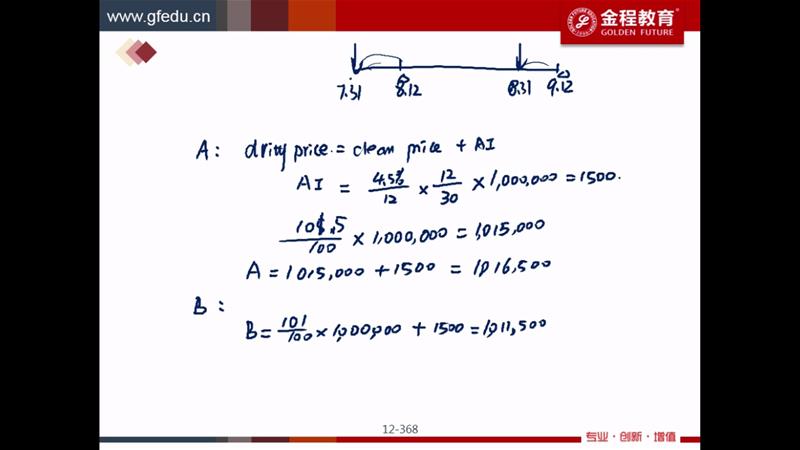 www.gfedu.cn
金程教育
GOLDEN FUTURE
7.31 8.12 8.31 9.12
A: dirty price = clean price + AI
AI = 4.5%/12 × 12/30 × 1,000,000 = 1500.
101.5/100 × 1,000,000 = 1,015,000
A = 1,015,000 + 1500 = 1,016,500
B:
B = 101/100 × 1,000,000 + 1500 = 1,011,500
12-368
专业·创新·增值